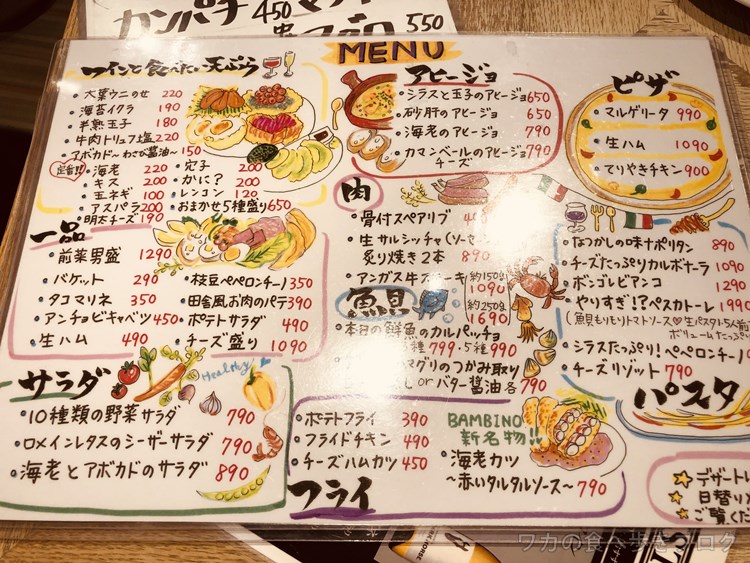 カンパチ 450
550
MENU
ワインと食べたい天ぷら
・大葉ウニのせ 220
・海苔イクラ 190
・半熟玉子 180
・牛肉トリュフ塩 220
・アボカド〜わさび醤油〜 150
定番!!
・海老 220
・キス 200
・玉ネギ 150
・アスパラ 200
・明太チーズ 190
・穴子 200
・かに? 200
・レンコン 120
・おまかせ5種盛り 650
一品
・前菜男盛 1290
・バケット 290
・タコマリネ 350
・アンチョビキャベツ 450
・生ハム 490
・枝豆ペペロンチーノ 350
・田舎風お肉のパテ 390
・ポテトサラダ 490
・チーズ盛り 1090
サラダ
Healthy
・10種類の野菜サラダ 790
・ロメインレタスのシーザーサラダ 790
・海老とアボカドのサラダ 890
アヒージョ
・シラスと玉子のアヒージョ 650
・砂肝のアヒージョ 650
・海老のアヒージョ 790
・カマンベールのアヒージョ 790
チーズ
肉
・骨付スペアリブ
・生サルシッチャ(ソーセ
炙り焼き2本 890
・アンガス牛ステーキ 約150g
1090
約250g
1690
魚貝
・本日の鮮魚のカルパッチョ
種 799・5種 990
マグリのつかみ取り
し or バター醤油 各790
フライ
・ポテトフライ 390
・フライドチキン 490
・チーズハムカツ 450
BAMBINO
新名物!!
・海老カツ
〜赤いタルタルソース〜 790
ピザ
・マルゲリータ 990
・生ハム 1090
・てりやきチキン 900
・なつかしの味ナポリタン 890
・チーズたっぷりカルボナーラ 1090
・ボンゴレビアンコ 1290
・やりすぎ!?ペスカトーレ 1990
(魚貝もりもりトマトソース 生パスタ1.5人前
ボリュームたっぷ
・シラスたっぷり!ペペロンチーノ
・チーズリゾット 790
パスタ
☆デザートレ
☆日替り
☆ご覧くだ
ワカの食べ歩きブログ